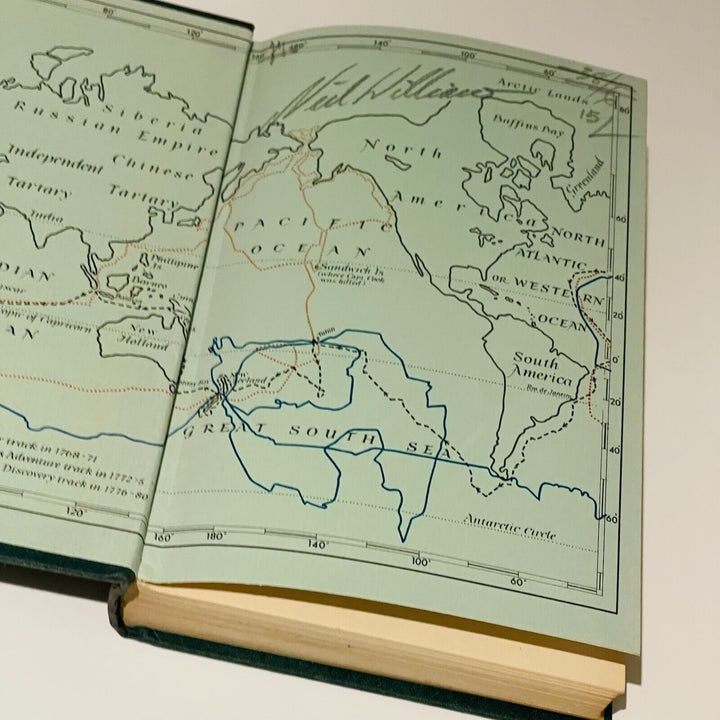 80°
120°
180°
140°
100°
60°
Neil Williams
Arctic Lands
80
15
Baffins Bay
Siberia
Russian Empire
North
Greenland
Independent
Chinese
Tartary
Tartary
America
60
India
PACIFIC
NORTH
OCEAN
ATLANTIC
DIAN
Philippine
Is.
Borneo
Sandwich Is
(where Capt. Cook
was killed)
OR WESTERN
40
20
OCEAN
AN
Tropic of Capricorn
New
Holland
Tahiti
0°
South
America
Rio de Janeiro
New
Zealand
20
GREAT SOUTH SEA
40
track in 1768-71
Adventure track in 1772-5
Discovery track in 1776-80
60
Antarctic Circle
120°
160°
180°
140°
100°
60°